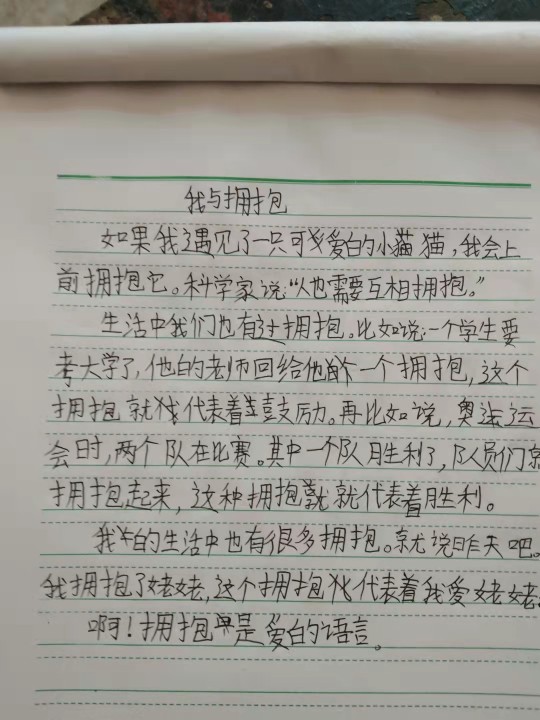 我与拥抱
如果我遇见了一只可爱的小猫猫，我会上
前拥抱它。科学家说：“人也需要互相拥抱。”
生活中我们也有过拥抱。比如说：一个学生要
考大学了，他的老师回给他一个拥抱，这个
拥抱就代表着鼓励。再比如说，奥运
会时，两个队在比赛。其中一个队胜利了，队员们就
拥抱起来，这种拥抱就代表着胜利。
我的生活中也有很多拥抱。就说昨天吧。
我拥抱了姥姥，这个拥抱代表着我爱姥姥。
啊！拥抱是爱的语言。